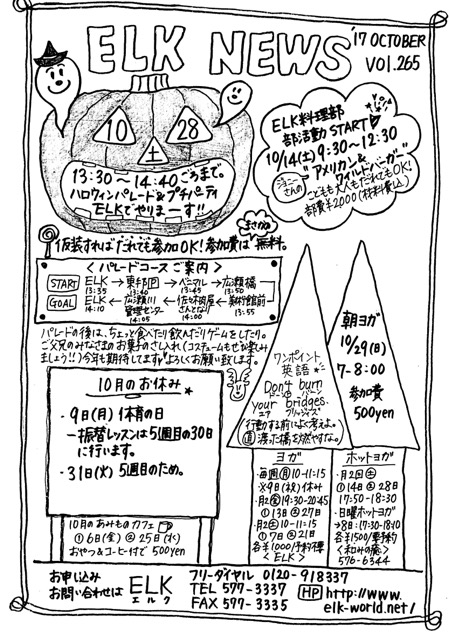 ELK NEWS
'17 OCTOBER
VOl.265
10 28
土
13:30〜14:40ごろまで。
ハロウィンパレード&プチパーティ
ELKでやりまーす!!
ELK料理部
部活動START
10/14(土)9:30〜12:30
ジョニーさんの
"アメリカン&
ワイルドバーガー"
こどもも大人もだれでもOK!
部費¥2000(材料費込)
仮装すればだれでも参加OK!参加費はまさかの無料。
<パレードコースご案内>
START ELK→東部→ベニマル→広瀬橋
13:35 13:40 13:45 13:50
GOAL ELK←広瀬川管理センター←佐々木肉屋さんとなり←美術館前
14:10 14:05 14:00 13:55
パレードの後は、ちょっと食べたり飲んだりゲームをしたり。
ご父兄のみなさまのお菓子のさし入れ(コスチュームもぜひ楽しみ
ましょう!!)今年も期待してます。よろしくお願い致します。
10月のお休み
・9日(月)体育の日
→振替レッスンは5週目の30日
に行います。
・31日(火)5週目のため。
10月のあみものカフェ
①6日(金)②25日(水)
おやつ&コーヒー付で500yen
ワンポイント
英語
Don't burn
ドーント バーン
your bridges.
ユア ブリッジィズ
行動する前によく考えよ。
(直 渡った橋を燃やすな。)
朝ヨガ
10/29(日)
7-8:00
参加費
500yen
ヨガ
毎週月10-11:15
※9日(祝)休み
・月2金19:30-20:45
①13日②27日
・月2土10-11:15
①7日②21日
各¥1000/予約不要
<ELK>
ホットヨガ
・月2回土
①14日②28日
17:50-18:30
・日曜ホットヨガ
→8日(17:30-18:10
各¥1500/要予約
<和みの庵>
576-6344
お申し込み
お問い合わせは
ELK
エルク
フリーダイヤル 0120-918337
TEL 577-3337
FAX 577-3335
HP http://www.
elk-world.net/